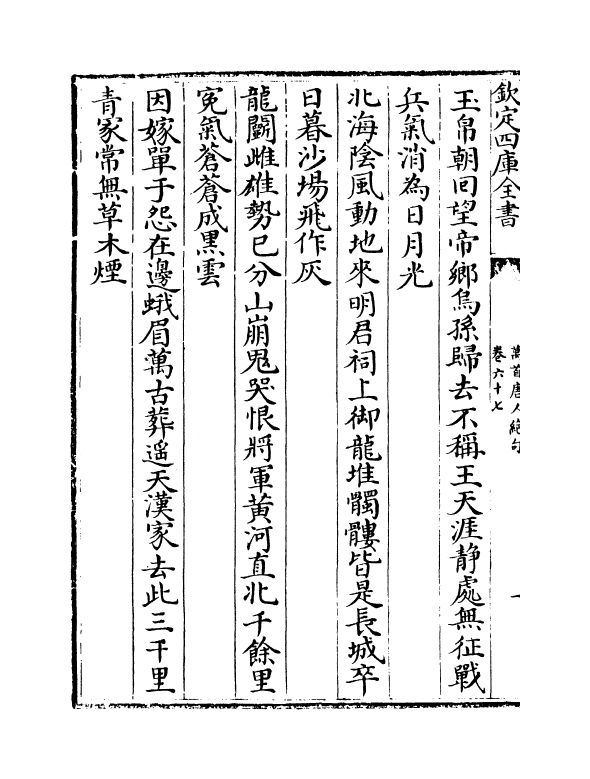 欽定四庫全書
萬首唐人絶句
卷六十七
一
玉帛朝回望帝鄉烏孫歸去不稱王天涯静處無征戰
兵氣消為日月光
北海隂風動地來明君祠上御龍堆髑髏皆是長城卒
日暮沙場飛作灰
龍闘雌雄勢已分山崩鬼哭恨將軍黄河直北千餘里
寃氣蒼蒼成黒雲
因嫁單于怨在邊蛾眉萬古葬遥天漢家去此三千里
青冢常無草木煙